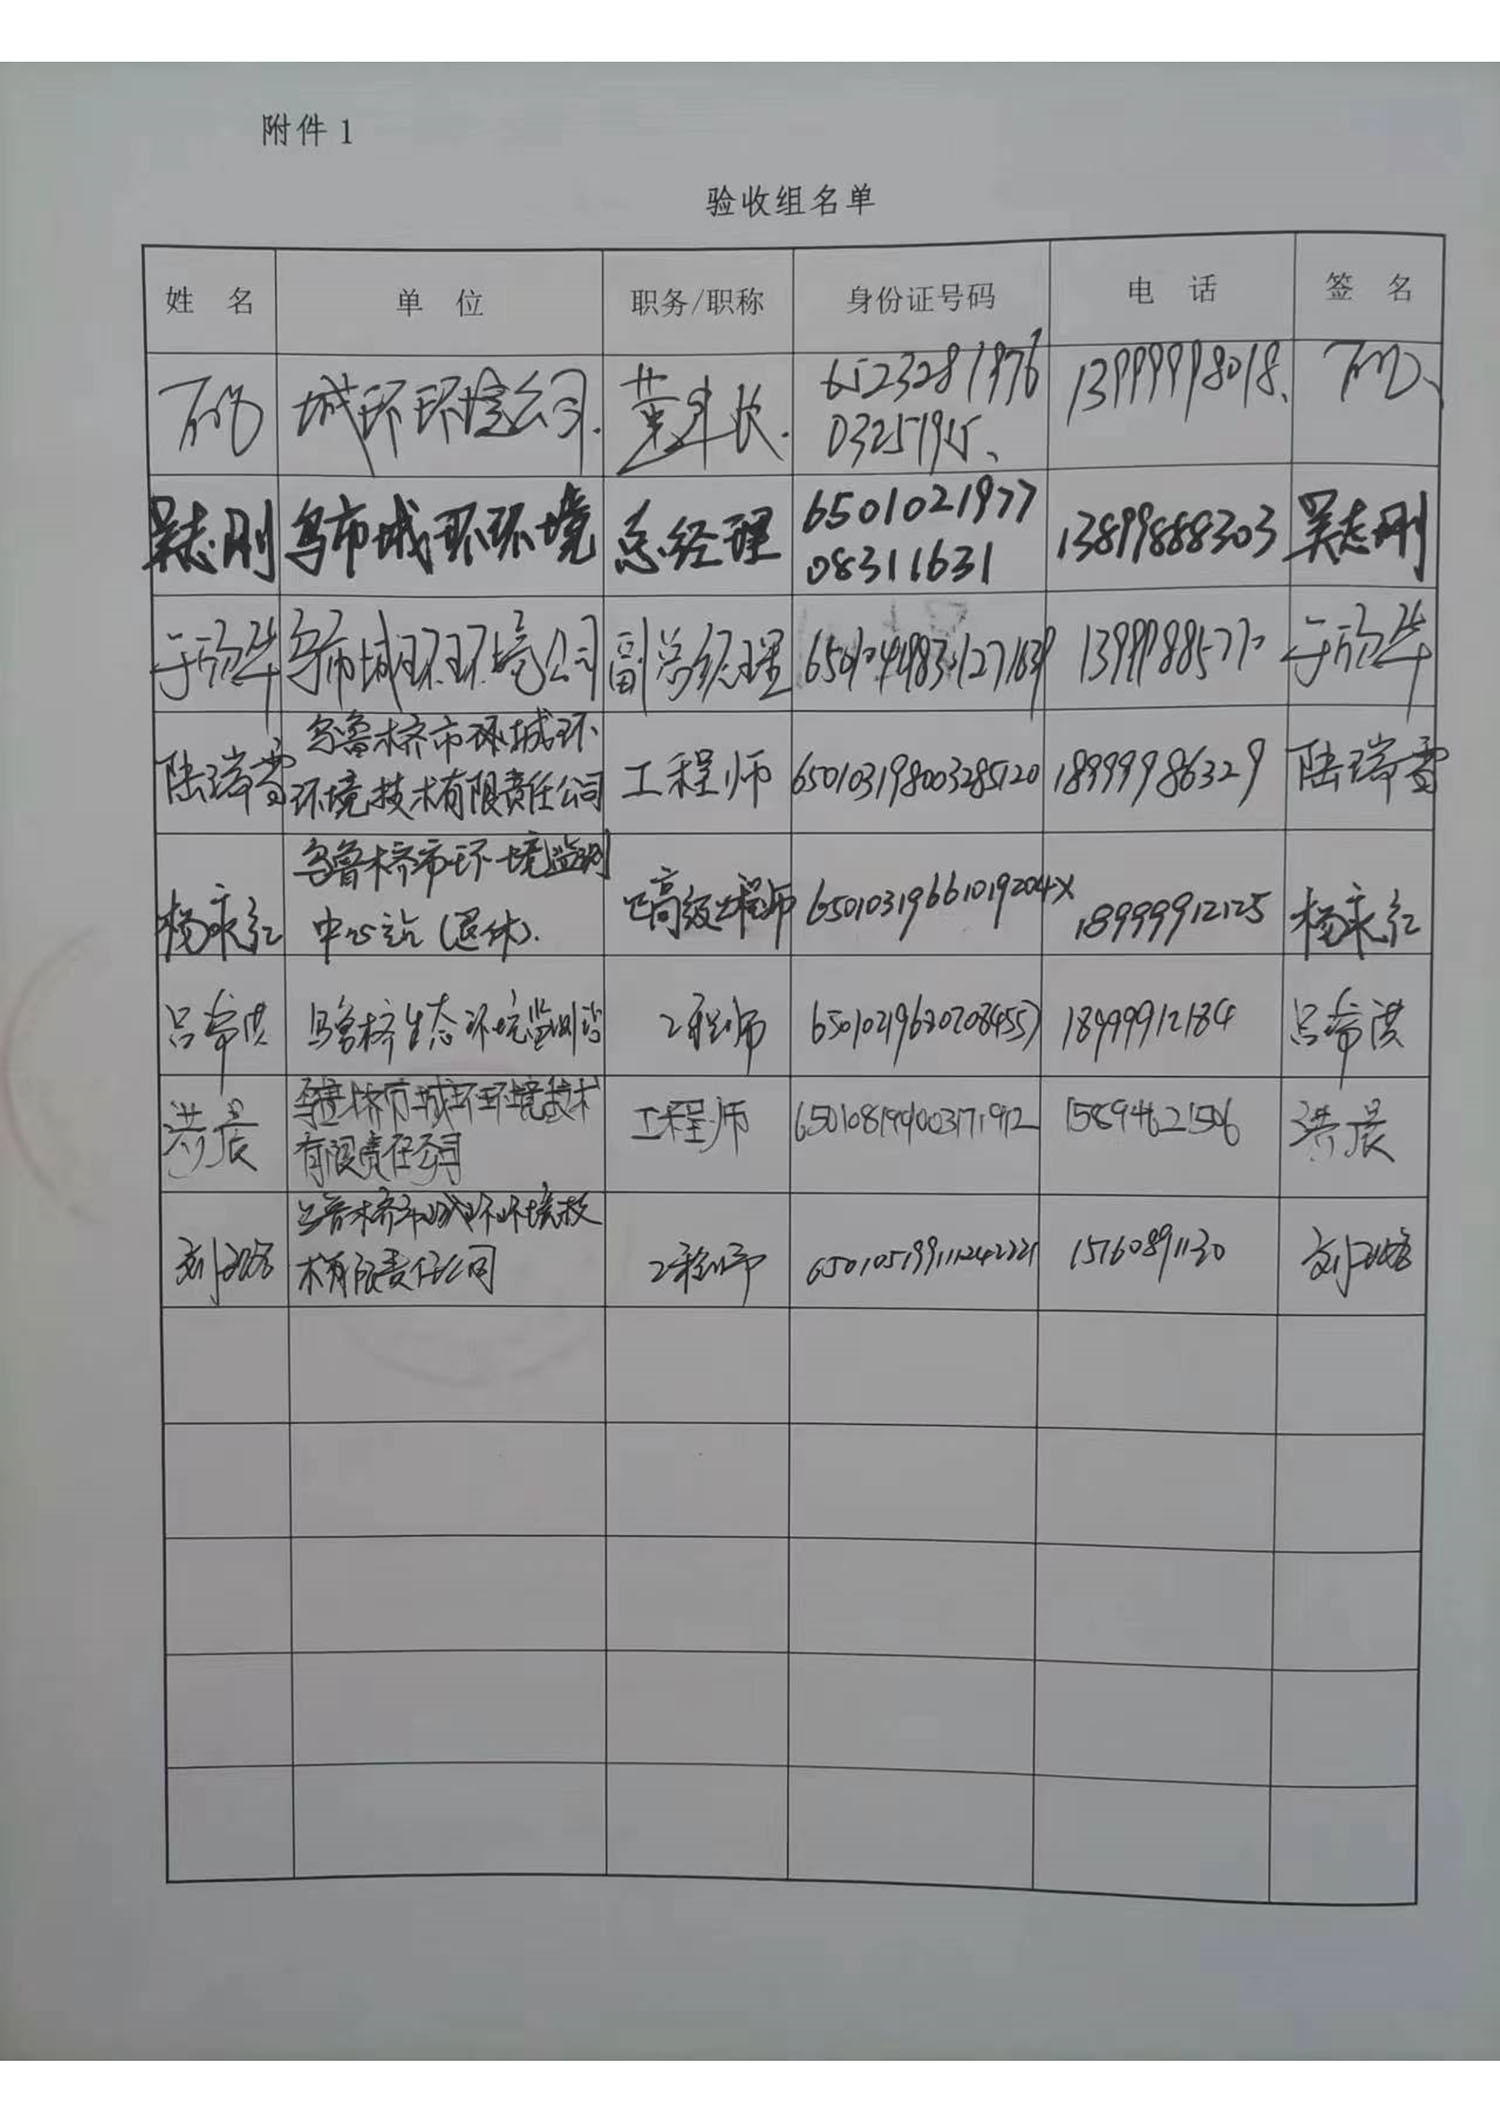 附件1
验收组名单
姓 名 单 位 职务/职称 身份证号码 电 话 签 名
城环环境公司. 董事长. 6523281976
03251915、 13999998018、
吴志刚 乌市城环环境 总经理 6501021977
08311631 13899888303 吴志刚
于欣华 乌市城环环境公司 副总经理 于欣华
陆瑞雪 乌鲁木齐市环城环
环境技术有限责任公司 工程师 650103198003285120 18999986329 陆瑞雪
杨永红 乌鲁木齐市环境监测
中心站(退休). 正高级工程师 65010319661019204X 18999912125 杨永红
吕希洪 乌鲁木齐生态环境监测站 工程师 18999912184 吕希洪
洪晨 乌鲁木齐市城环环境技术
有限责任公司 工程师 650108199003171912 15894621506 洪晨
刘 乌鲁木齐市城环环境技
术有限责任公司 工程师 15160891130 刘